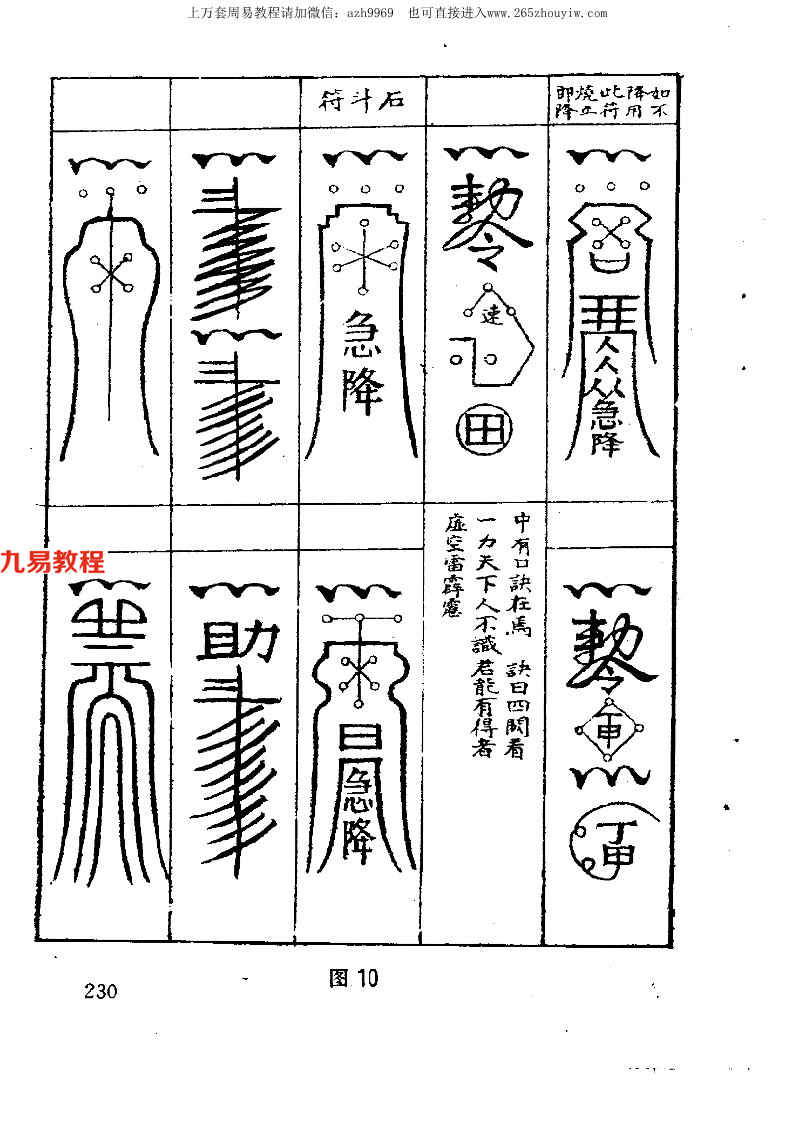 上万套周易教程请加微信：azh9969 也可直接进入www.265zhouyiw.com
如不
降用
此符
燒立
即降
石斗符
人
人
从
急降
勅令
速
田
急降
中有口訣在焉 訣曰四閃看
一力天下人不識 君能有得者
虛空雷霹靂
勅令
甲
丁甲
日
急降
助
九易教程
图10
230